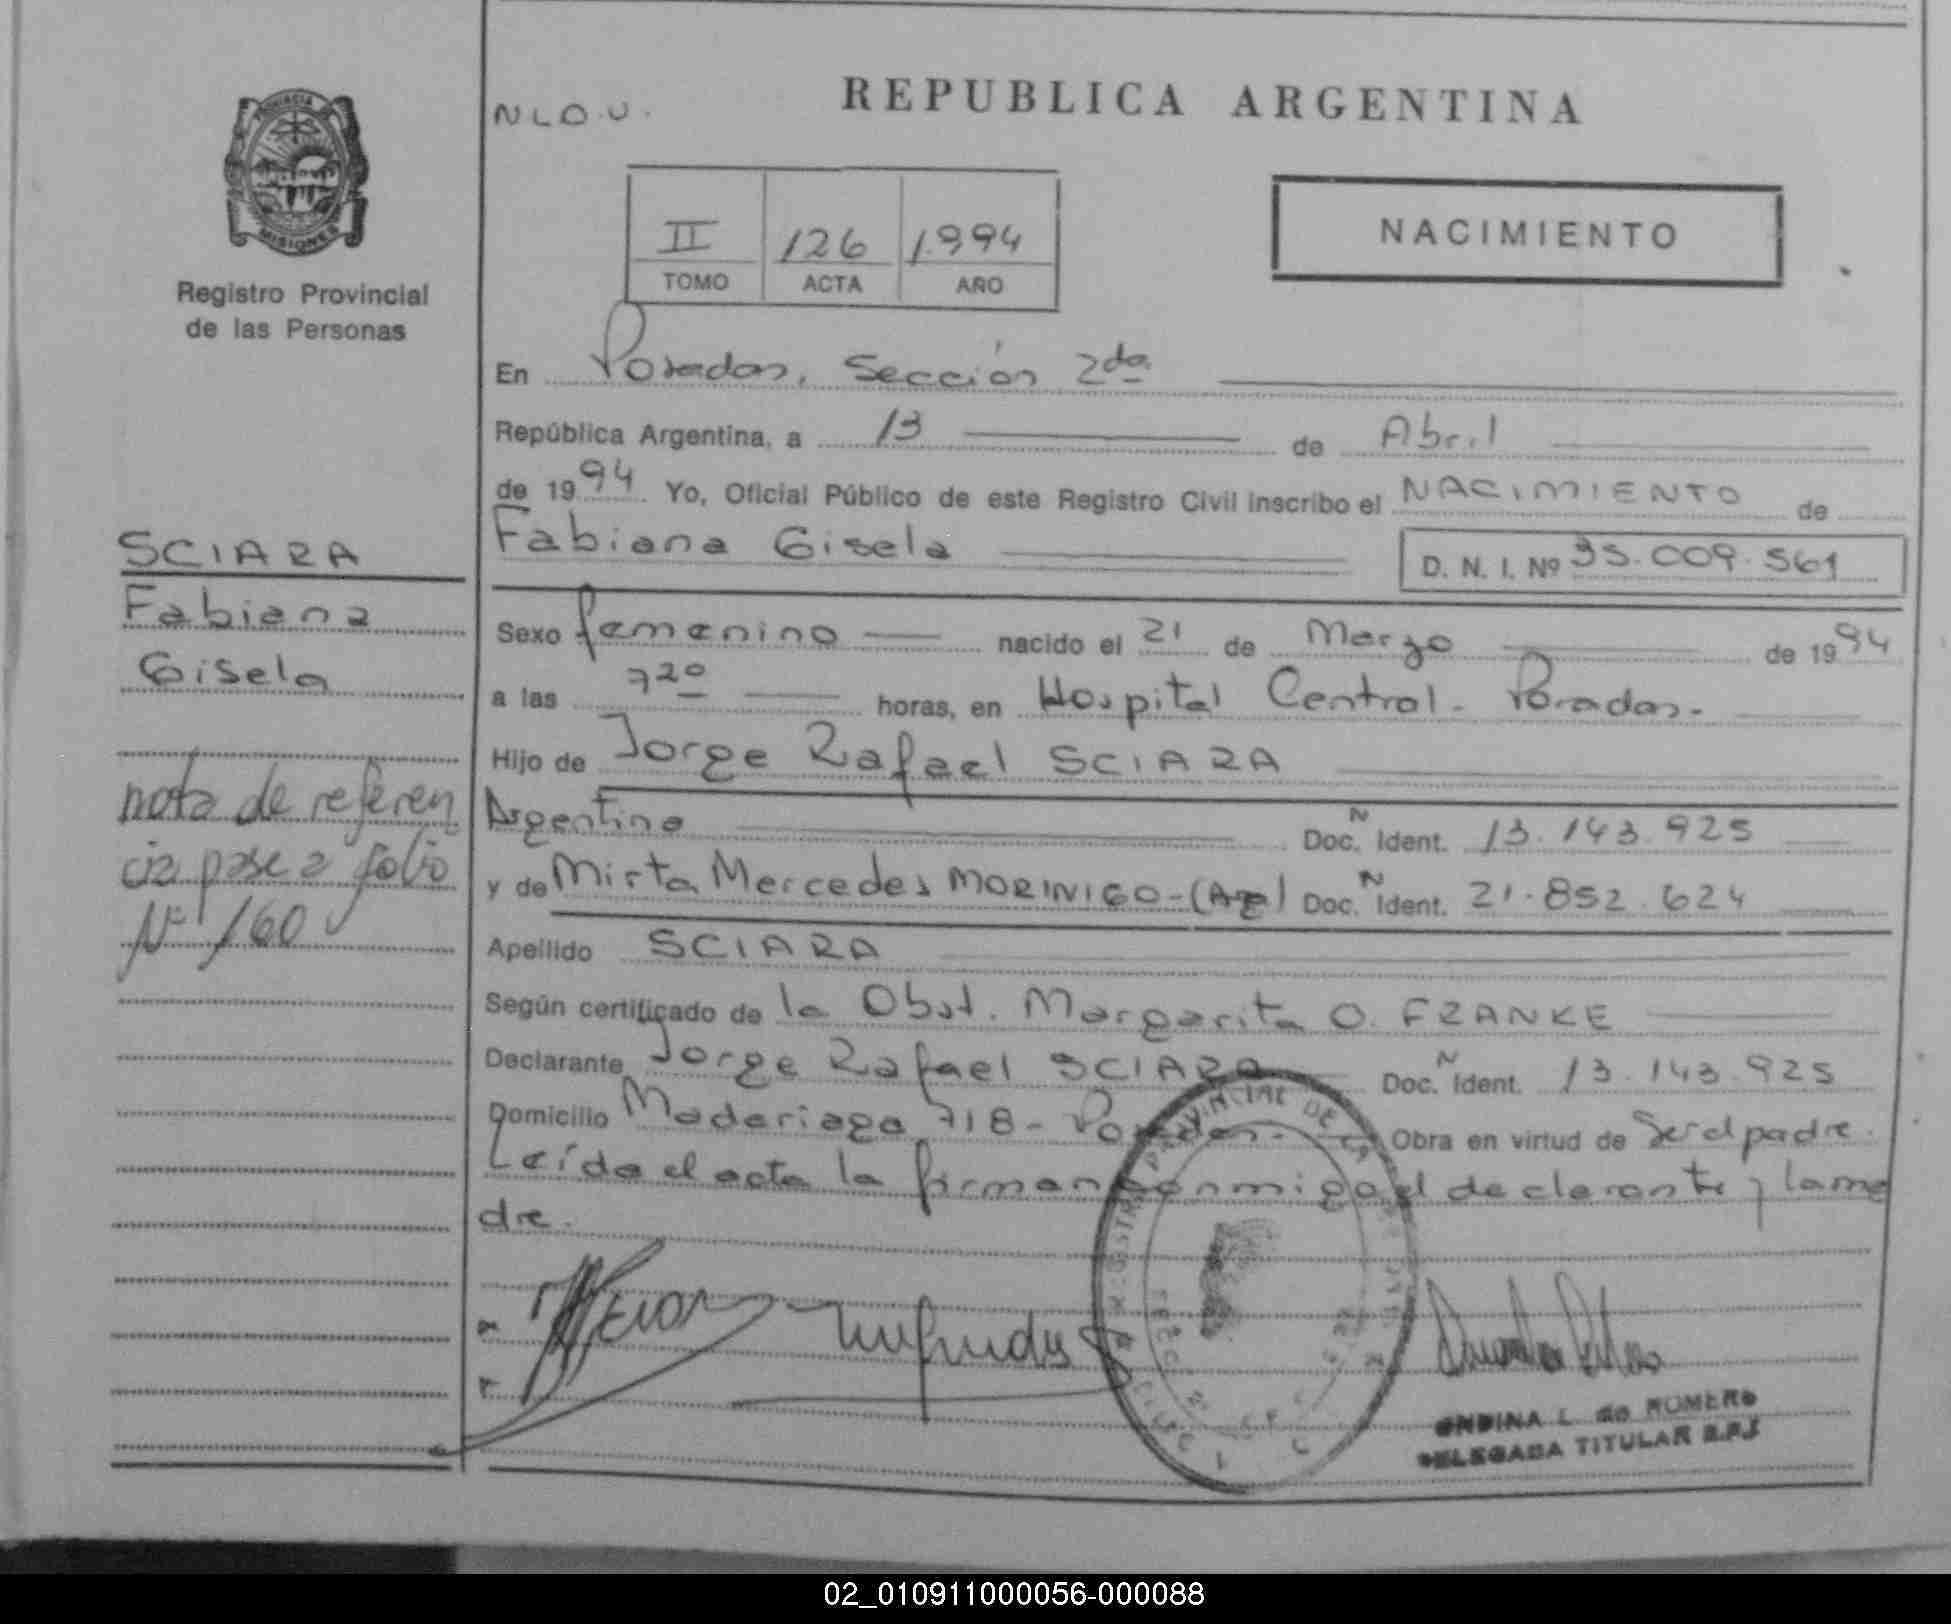 MISIONES
Registro Provincial
de las Personas
SCIARA
Fabiana
Gisela
nota de referen
cia pase a folio
Nº 160
N L O . U .
REPUBLICA ARGENTINA
II 126 1.994
TOMO ACTA AÑO
NACIMIENTO
En Posadas, Sección 2da.
República Argentina, a 13 de Abril
de 1994 Yo, Oficial Público de este Registro Civil inscribo el NACIMIENTO de
Fabiana Gisela D. N. I. Nº 35.009.561
Sexo femenino nacido el 21 de Marzo de 1994
a las 720 horas, en Hospital Central - Posadas -
Hijo de Jorge Rafael SCIARA
Argentino Doc. N Ident. 13.143.925
y de Mirta Mercedes MORINIGO - (Arg) Doc. N Ident. 21.852.624
Apellido SCIARA
Según certificado de la Obst. Margarita O. FRANKE
Declarante Jorge Rafael SCIARA Doc. N Ident. 13.143.925
Domicilio Madariaga 718 - Posadas - Obra en virtud de Ser el padre.
Leída el acta la firman conmigo el declarante y la ma
dre.
ONDINA L. de ROMERO
DELEGADA TITULAR R.P.J
02_010911000056-000088